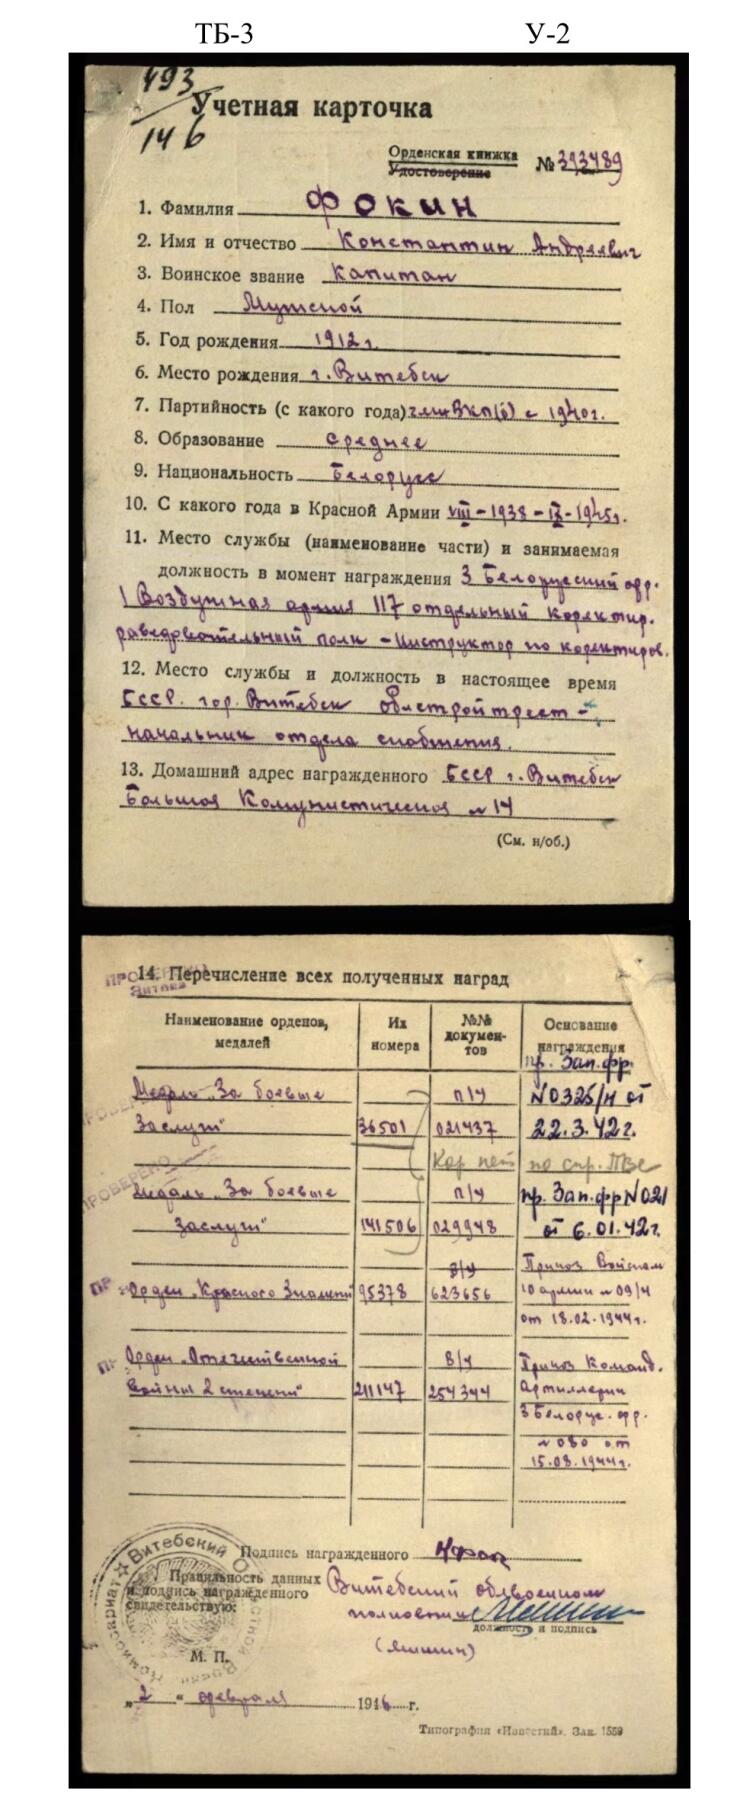 ТБ-3 У-2
493
146
Учетная карточка
Орденская книжка
Удостоверение № 393489
1. Фамилия Фокин
2. Имя и отчество Константин Андреевич
3. Воинское звание Капитан
4. Пол Мужской
5. Год рождения 1912 г.
6. Место рождения г. Витебск
7. Партийность (с какого года) член ВКП(б) с 1940 г.
8. Образование среднее
9. Национальность Белорусс
10. С какого года в Красной Армии VIII-1938-IX-1945 г.
11. Место службы (наименование части) и занимаемая
должность в момент награждения 3 Белорусский фр.
1 Воздушная армия 117 отдельный коректир.
разведовательный полк - инструктор по коректиров.
12. Место службы и должность в настоящее время
БССР. гор. Витебск облстройтрест -
начальник отдела снабжения.
13. Домашний адрес награжденного БССР г. Витебск
Большая Комунистическая № 14
(См. н/об.)
ПРОВЕРЕНО
14. Перечисление всех полученных наград
Наименование орденов, медалей Их номера №№ документов Основание награждения
пр. Зап. фр
Медаль "За боевые п/у №0325/н от
Заслуги" 36501 021437 22.3.42 г.
ПРОВЕРЕНО
Медаль "За боевые п/у пр. Зап. фр №021
Заслуги" 141506 029948 от 6.01.42 г.
в/у Приказ Войскам
Орден "Красного Знамени" 95378 623656 10 армии № 09/н
от 18.02.1944 г.
Орден "Отечественной в/у Приказ Команд.
Войны 2 степени" 211147 254344 Артиллерии
3 Белорус. фр.
№ 030 от
15.08.1944 г.
Подпись награжденного
Правильность данных Витебский облвоенком
и подпись награжденного полковник
свидетельствую:
должность и подпись
М. П.
„2“ февраля 1946 г.
Типография «Известий». Зак. 1559